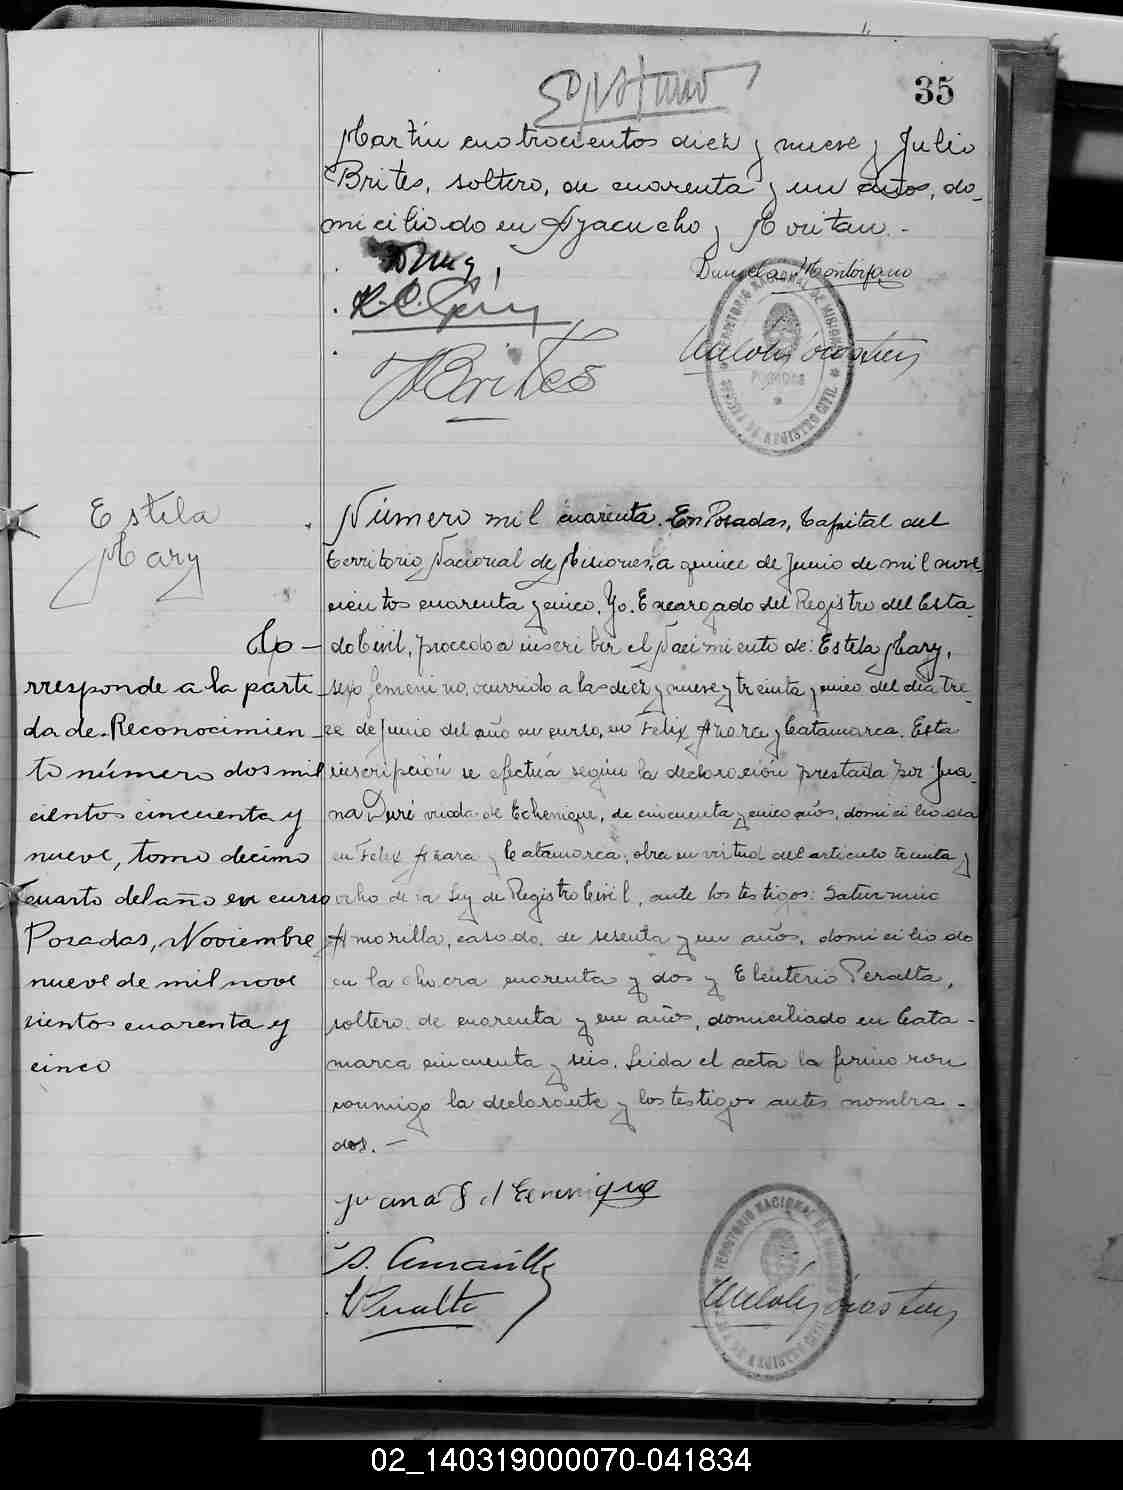 35
Martín cuatrocientos diez y nueve y Julio
Brites, soltero, de cuarenta y un años, do-
miciliado en Ayacucho y Roritan.-
Daniela Montórfano
JBrites
TERRITORIO NACIONAL DE MISIONES
POSADAS
REGISTRO CIVIL
Estela
Mary
Co-
rresponde a la parti-
da de Reconocimien-
to número dos mil
cientos cincuenta y
nueve, tomo decimo
cuarto del año en curso
Posadas, Noviembre
nueve de mil nove
sientos cuarenta y
cinco
Número mil cuarenta. En Posadas, Capital del
Territorio Nacional de Misiones, a quince de Junio de mil nove-
cientos cuarenta y cinco. Yo. Encargado del Registro del Esta-
do Civil, procedo a inscribir el Nacimiento de: Estela Mary,
sexo femenino, ocurrido a las diez y nueve y treinta y cinco del día tre-
ce de Junio del año en curso, en Felix Azara y Catamarca. Esta
inscripción se efectúa según la declaración prestada por Jua-
na Duré viuda de Echenique, de cincuenta y cinco años, domiciliada
en Felix Azara y Catamarca; obra en virtud del articulo treinta y
ocho de la Ley de Registro Civil, ante los testigos: Saturnino
Amarilla, casado, de sesenta y un años, domiciliado
en la chacra cuarenta y dos y Eleuterio Peralta,
soltero, de cuarenta y un años, domiciliado en Cata-
marca cincuenta y seis. Leida el acta la firmaron
conmigo la declarante y los testigos antes nombra-
dos.-
Juana D d Echenique
S. Amarilla
E Peralta
TERRITORIO NACIONAL DE MISIONES
REGISTRO CIVIL
02_140319000070-041834